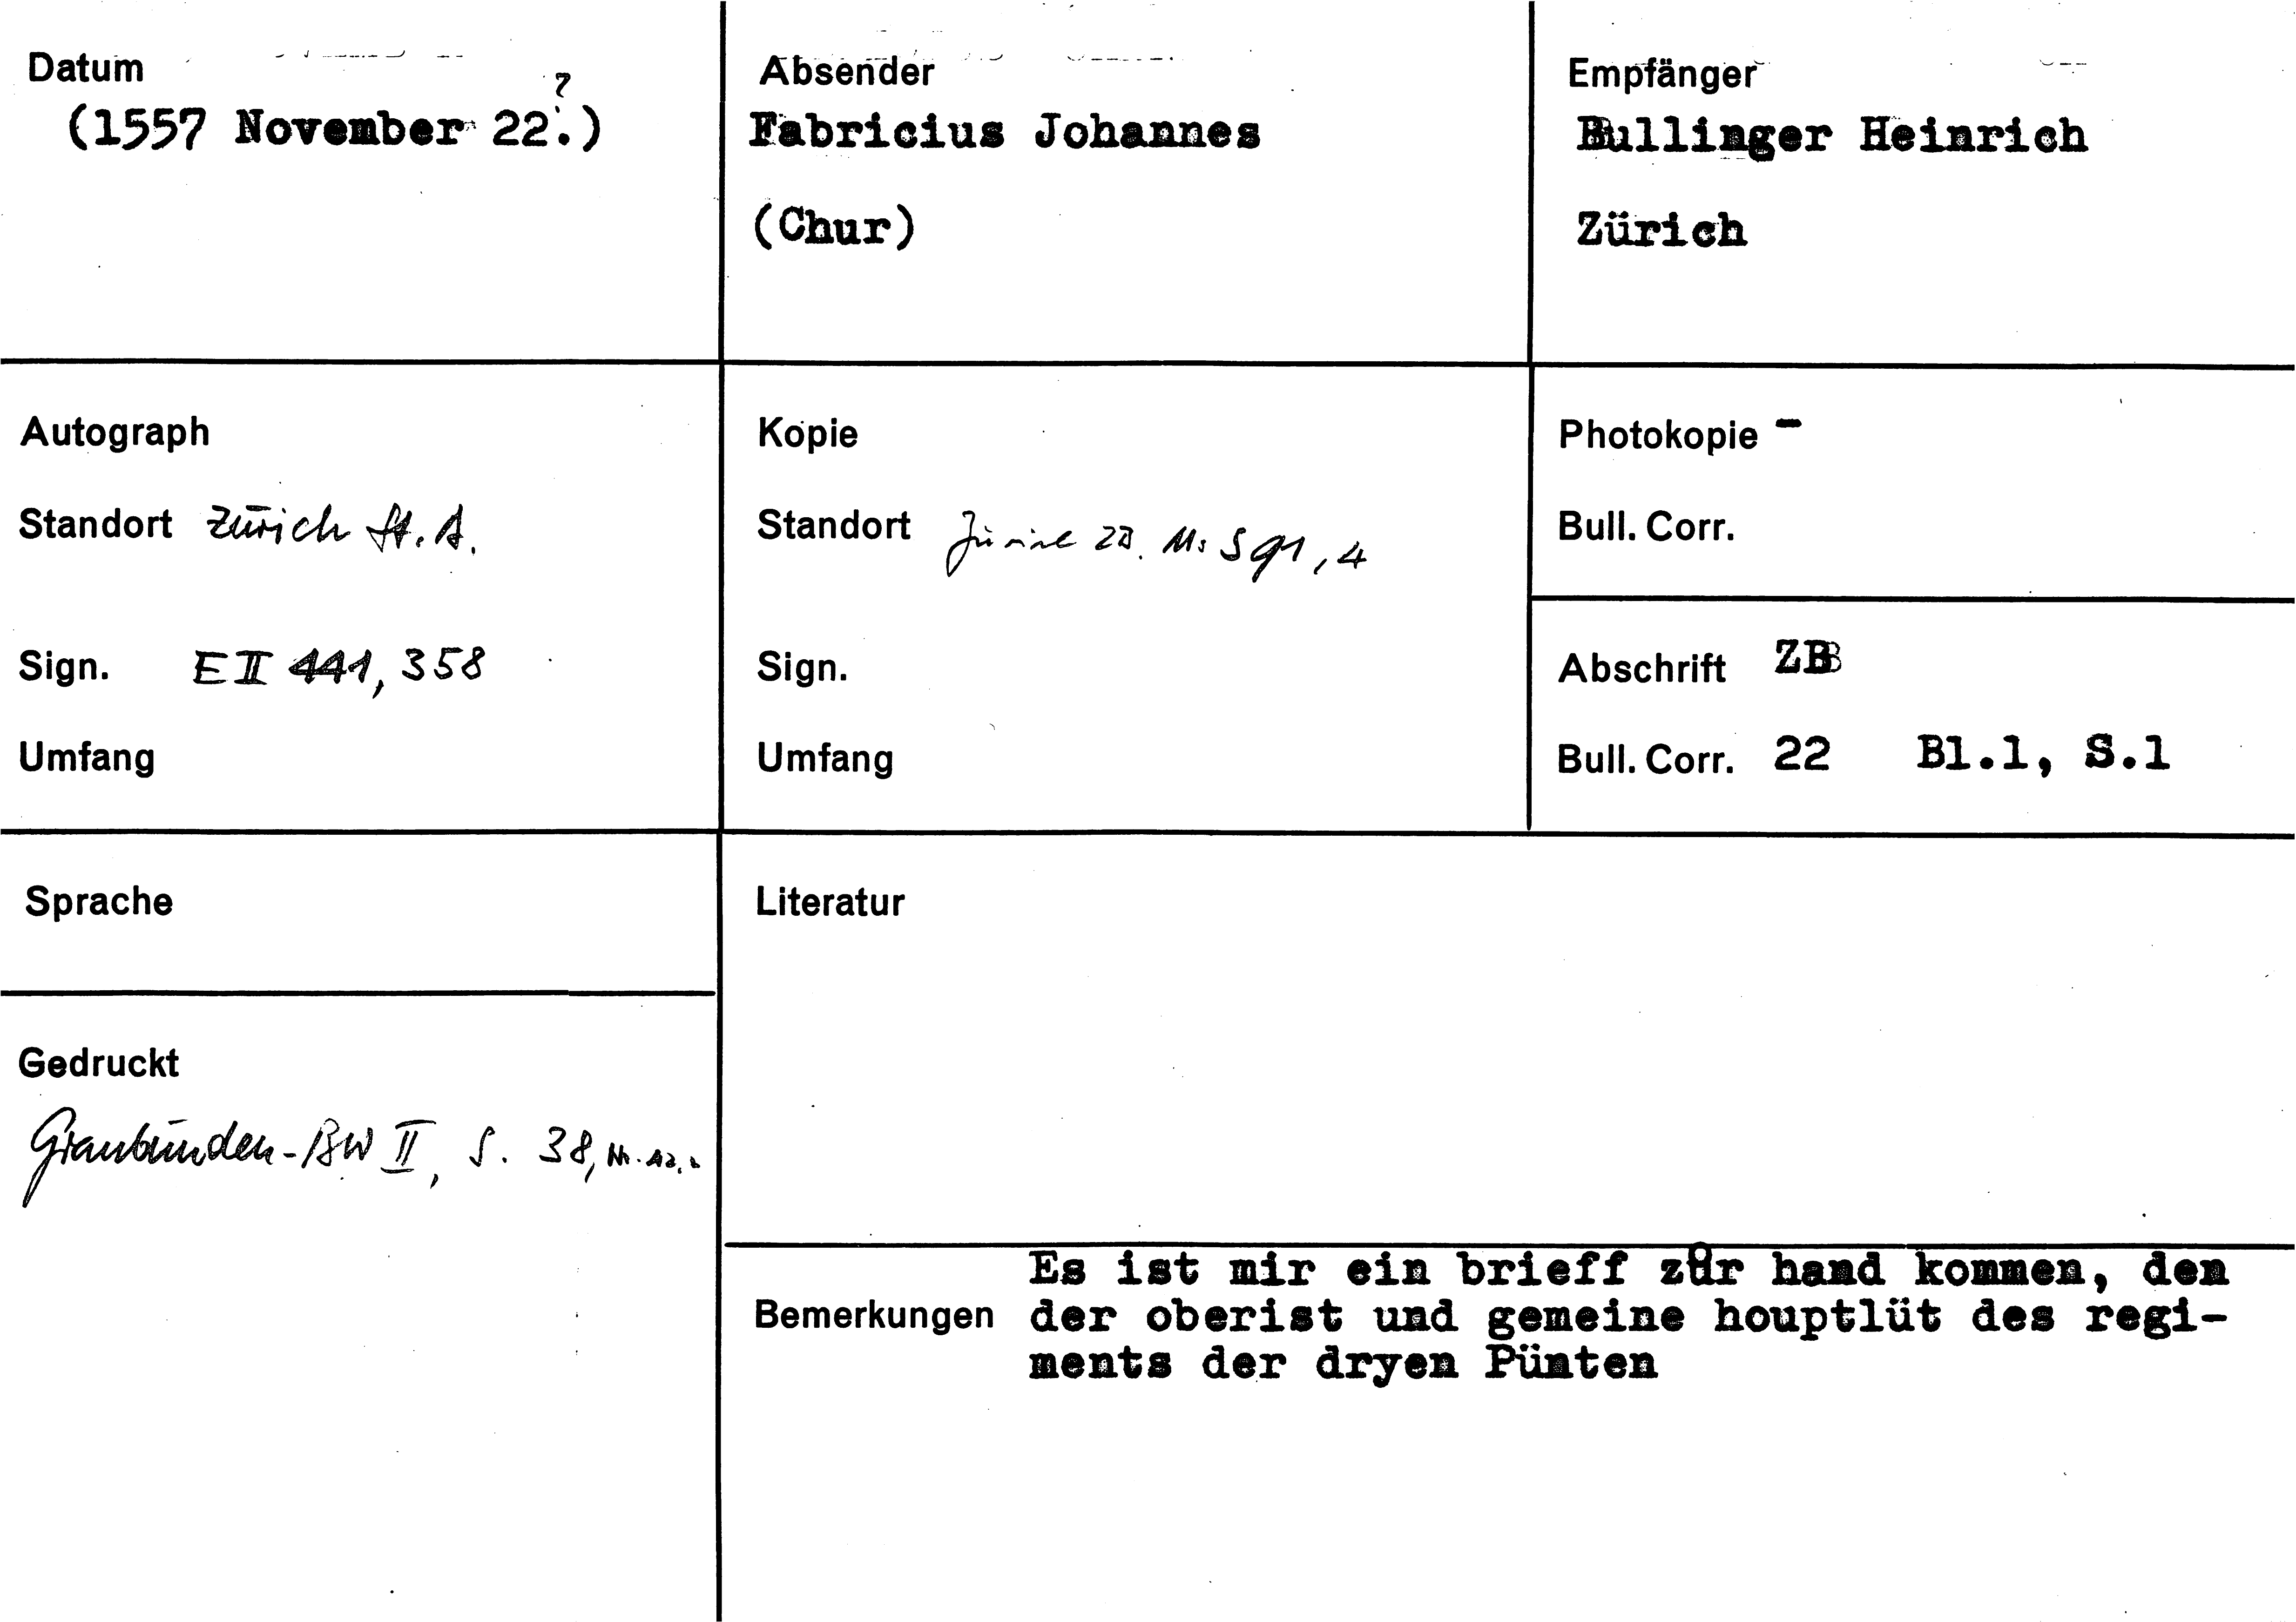 Datum
(1557 November 22.?)
Absender
Fabricius Johannes
(Chur)
Empfänger
Bullinger Heinrich
Zürich
Autograph
Standort Zürich St. A.
Sign. E II 441, 358
Umfang
Kopie
Standort Zürich ZB. Ms S 91, 4
Sign.
Umfang
Photokopie -
Bull. Corr.
Abschrift ZB
Bull. Corr. 22 Bl.1, S.1
Sprache
Gedruckt
Graubünden-BW II, S. 38, Nr.
Literatur
Bemerkungen
Es ist mir ein brieff zůr hand kommen, den
der oberist und gemeine houptlüt des regi-
ments der dryen Pünten